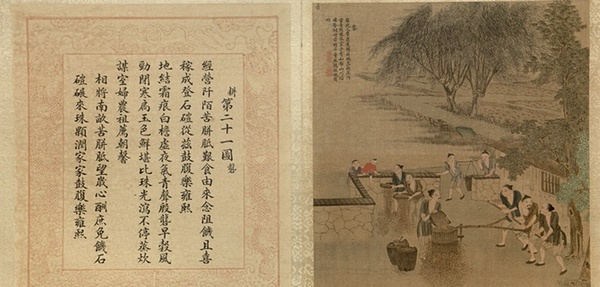 耕第二十一圖 礱
經營阡陌苦胼胝艱食由來念阻饑且喜
稼成登石磑從茲鼓腹樂雍熙
地結霜痕白檐虛夜氣青聲殷礱早穀風
勁閉寒扃玉色鮮堪比珠光瀉不停蒸炊
謀室婦農祖薦朝馨
相將南畝苦胼胝望歲心酬庶免饑石
磑碾來珠顆潤家家鼓腹樂雍熙